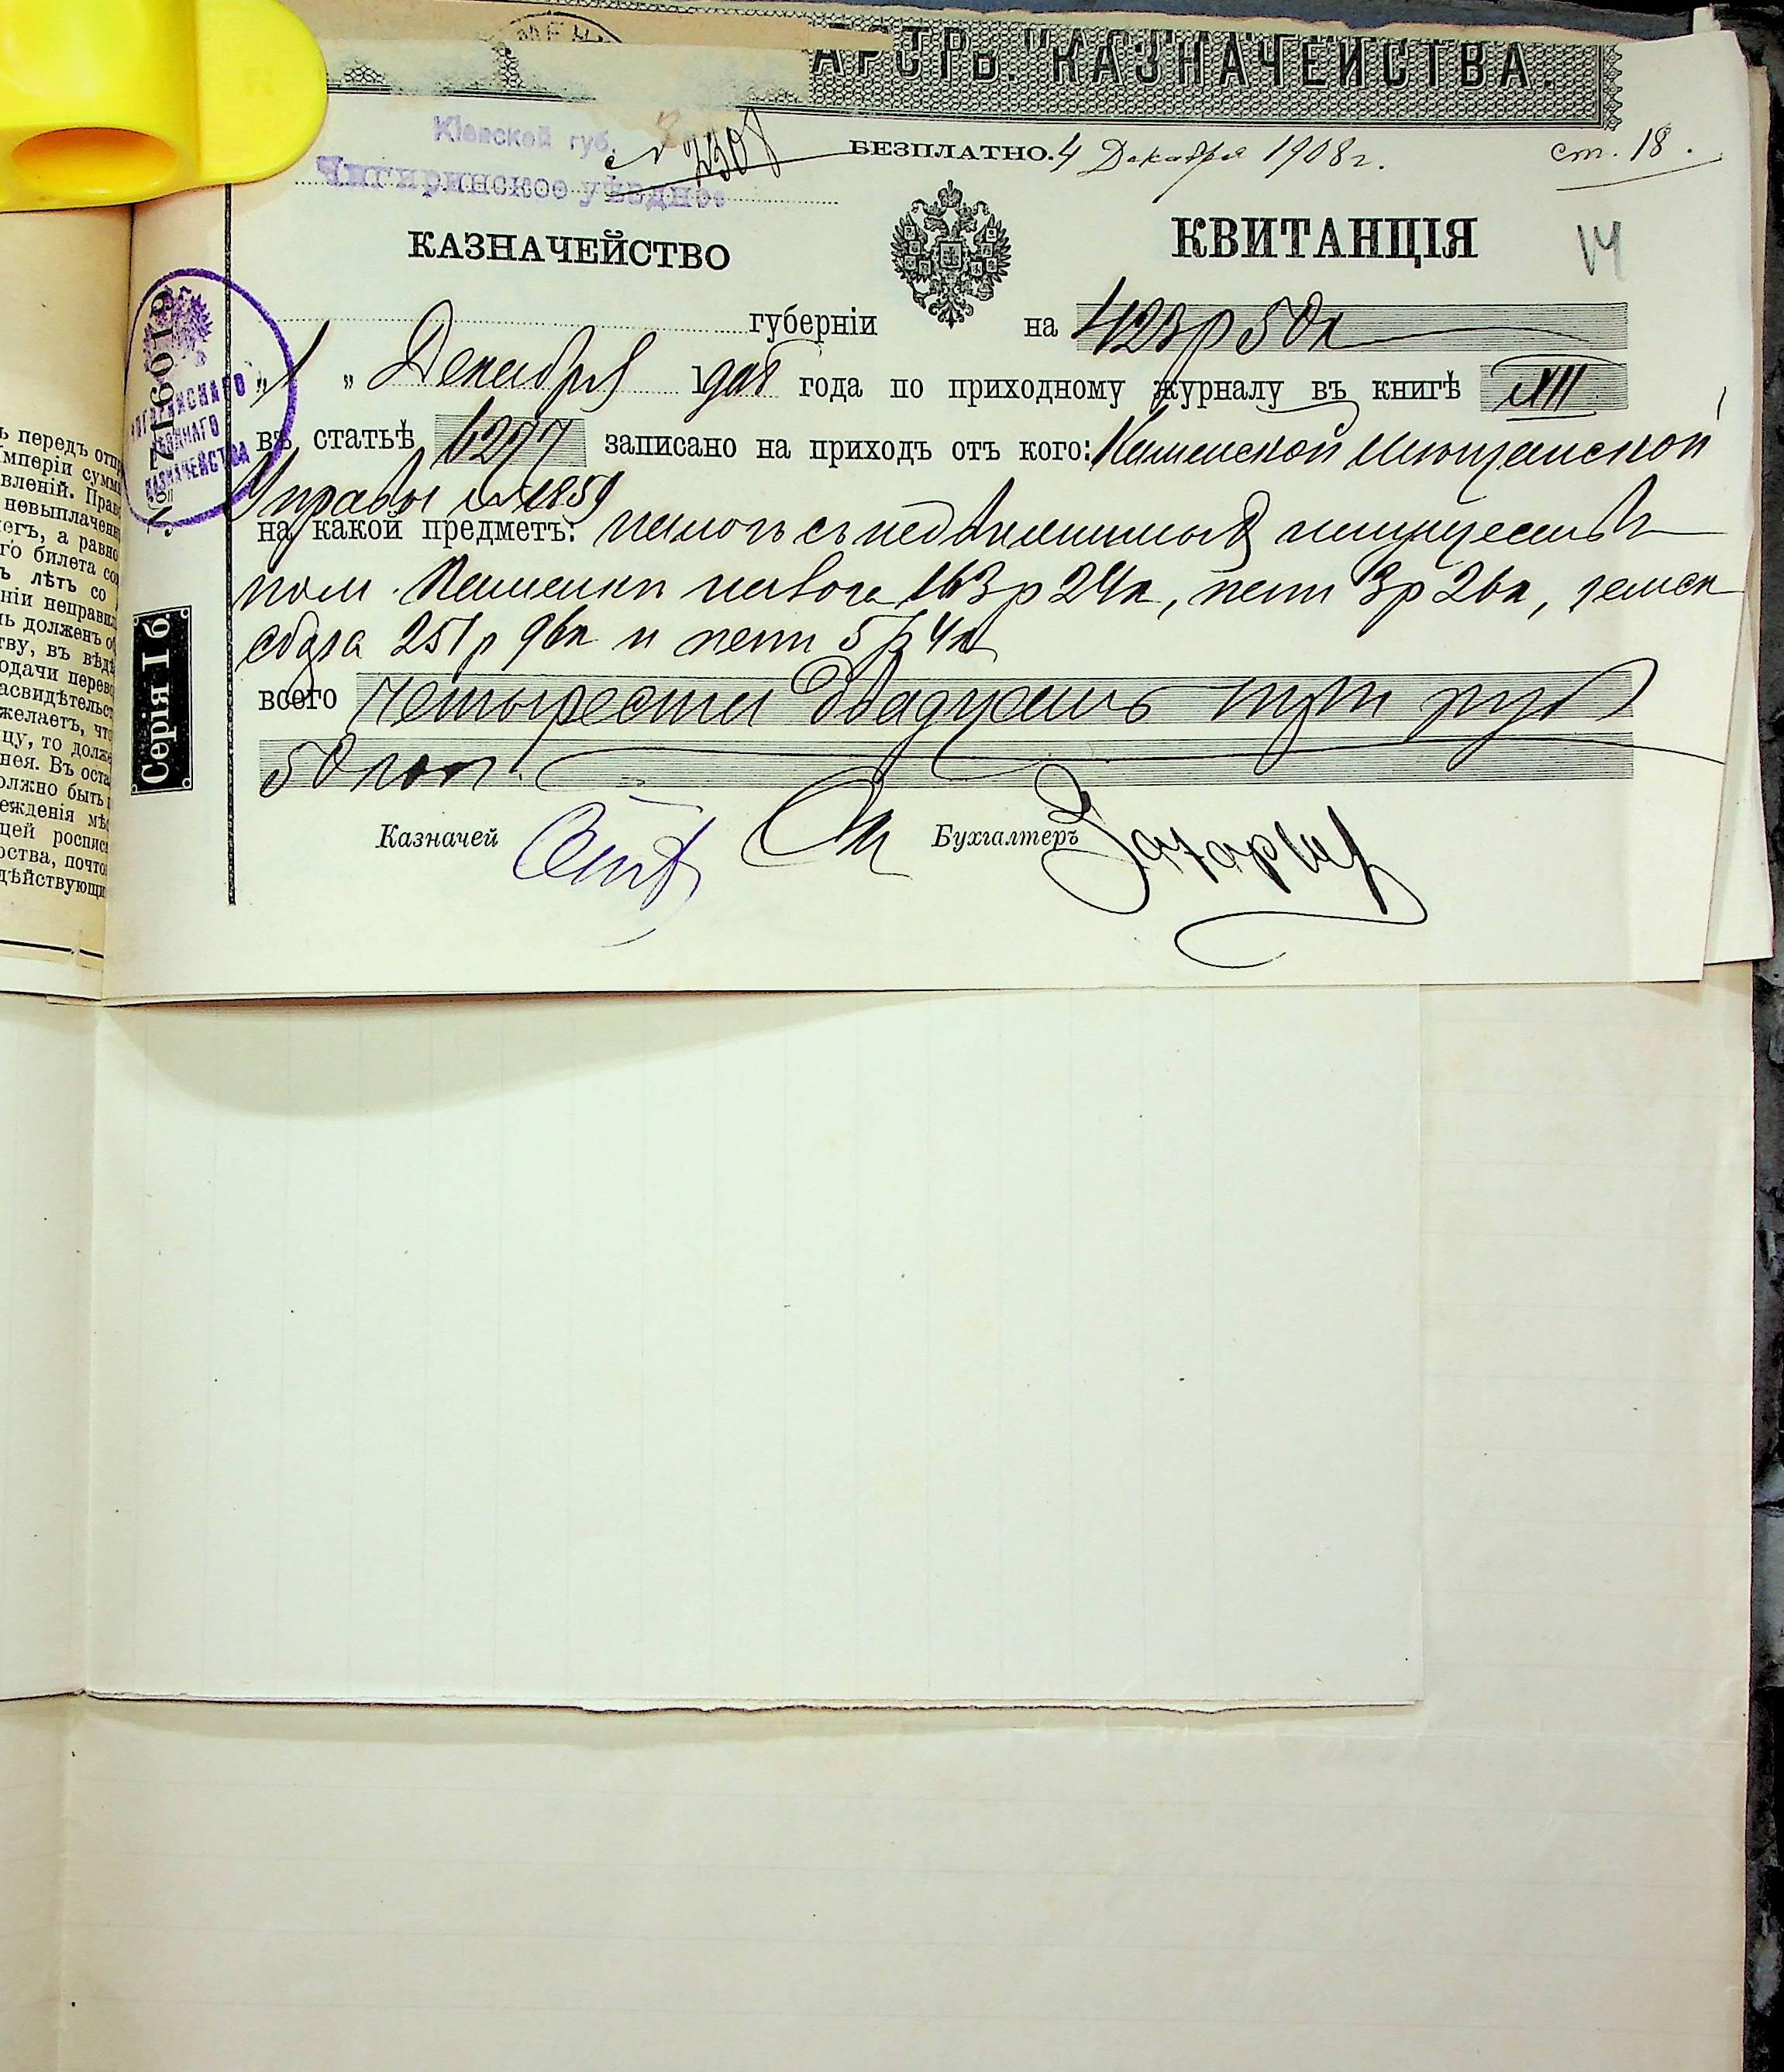 АРСТВ. КАЗНАЧЕЙСТВА.
Кіевской губ.
№ 2508
БЕЗПЛАТНО. 4 Декабря 1908 г. ст. 18.
Чигиринское уѣздное
КАЗНАЧЕЙСТВО
КВИТАНЦІЯ
14
губерніи
на 423 р 50 к
„1 „ Декабря 1908 года по приходному журналу въ книгѣ XII
въ статьѣ 6297 записано на приходъ отъ кого: Каменской Мѣщанской
Управы № 1859
на какой предметъ: налогъ съ недвижимыхъ имуществъ
пом. Каменки налога 163 р 24 к, пени 3 р 26 к, земск
сбора 251 р 96 к и пени 5 р 4 к
всего Четыреста двадцать три руб
50 коп.
Казначей
Бухгалтеръ Захаріев
№ 716019
ЧИГИРИНСКАГО
УѢЗДНАГО
КАЗНАЧЕЙСТВА
Серія I б
ь передъ отп
Имперіи сумм
вленій. Прав
невыплаченн
егъ, а равно
го билета со
ъ лѣтъ со
ніи неправил
ь долженъ о
тву, въ вѣд
одачи перев
асвидѣтельст
желаетъ, чт
цу, то долж
нея. Въ оста
олжно быть
ежденія мѣ
щей роспис
рства, почто
дѣйствующи